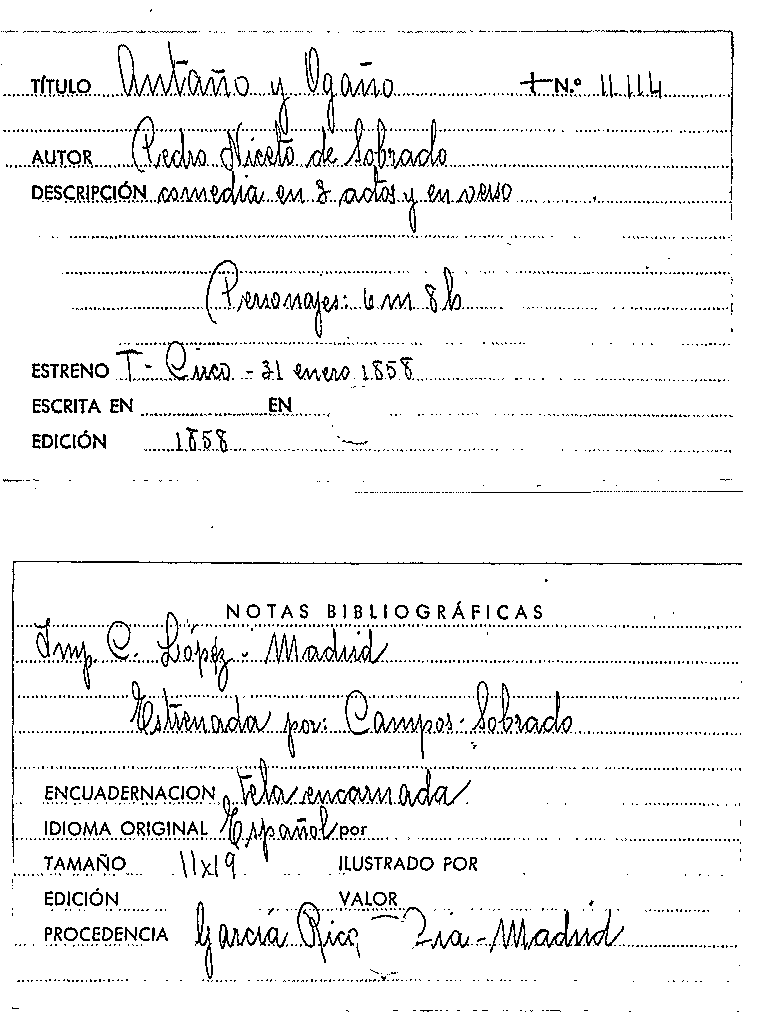 TÍTULO Antaño y Ogaño + N.º 11114
AUTOR Pedro Niceto de Sobrado
DESCRIPCIÓN comedia en 3 actos y en verso
Personajes: 6 m 8 h
ESTRENO T- Circo - 31 enero 1858
ESCRITA EN EN
EDICIÓN 1858
NOTAS BIBLIOGRÁFICAS
Imp. C. López - Madrid
Estrenada por: Campos-Sobrado
ENCUADERNACION tela encarnada
IDIOMA ORIGINAL Español por
TAMAÑO 11x19 ILUSTRADO POR
EDICIÓN VALOR
PROCEDENCIA García Rico - Madrid